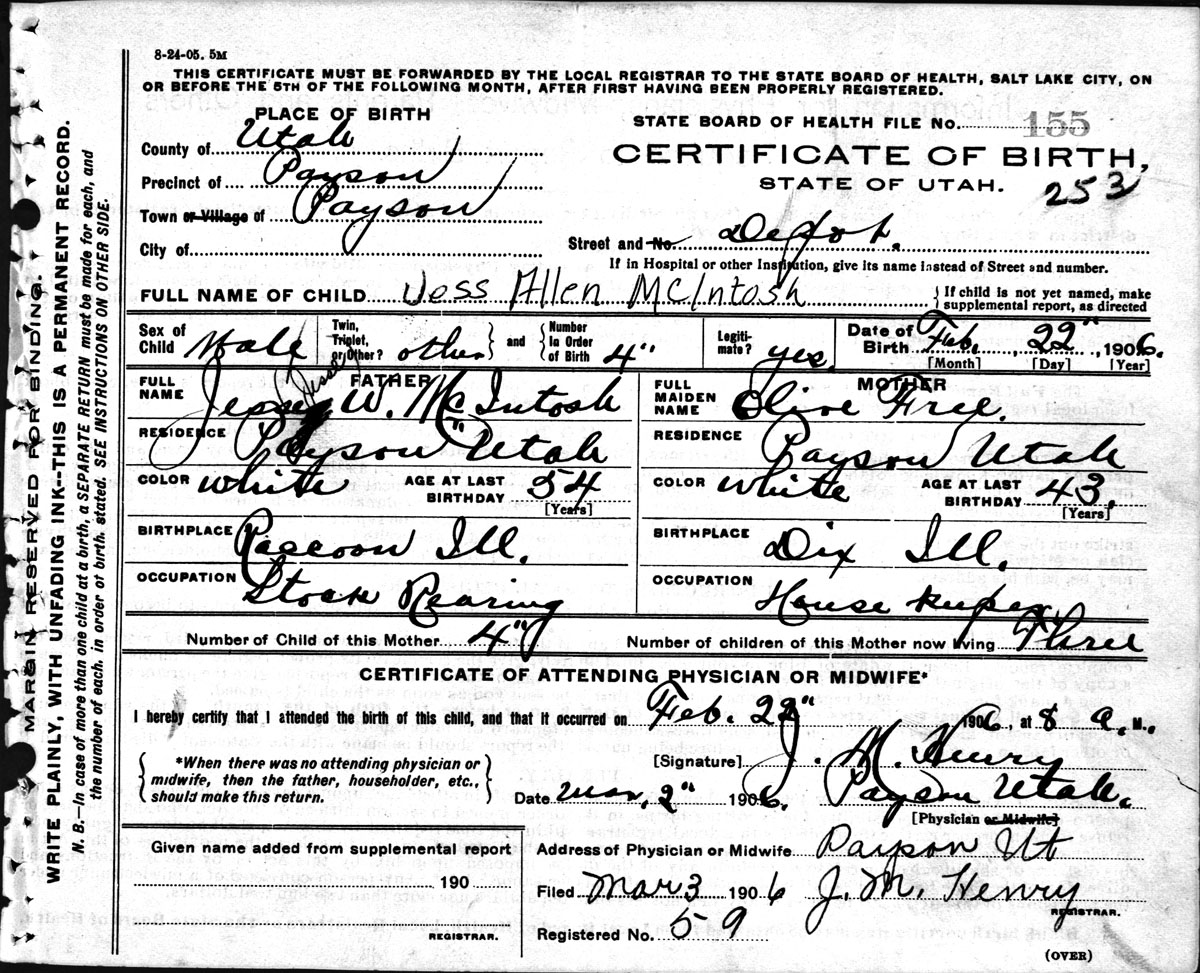 8-24-05. 5M
THIS CERTIFICATE MUST BE FORWARDED BY THE LOCAL REGISTRAR TO THE STATE BOARD OF HEALTH, SALT LAKE CITY, ON
OR BEFORE THE 5TH OF THE FOLLOWING MONTH, AFTER FIRST HAVING BEEN PROPERLY REGISTERED.
PLACE OF BIRTH
County of Utah
Precinct of Payson
Town or Village of Payson
City of
STATE BOARD OF HEALTH FILE No. 155
CERTIFICATE OF BIRTH,
STATE OF UTAH. 253
Street and No. Depot.
If in Hospital or other Institution, give its name instead of Street and number.
FULL NAME OF CHILD Jess Allen McIntosh {If child is not yet named, make
supplemental report, as directed
Sex of Child Male Twin, Triplet, or Other? other } and { Number In Order of Birth 4" Legiti-mate? yes. Date of Birth Feb. 22", 1906.
[Month] [Day] [Year]
FATHER
FULL NAME Jesse W. McIntosh
Jesse
RESIDENCE Payson Utah
COLOR white AGE AT LAST BIRTHDAY 54
[Years]
BIRTHPLACE Raccoon Ill.
OCCUPATION Stock Rearing
MOTHER
FULL MAIDEN NAME Olive Free.
RESIDENCE Payson Utah
COLOR white AGE AT LAST BIRTHDAY 43.
[Years]
BIRTHPLACE Dix Ill.
OCCUPATION House keeper
Number of Child of this Mother 4" Number of children of this Mother now living Three
CERTIFICATE OF ATTENDING PHYSICIAN OR MIDWIFE*
I hereby certify that I attended the birth of this child, and that it occurred on Feb. 22" 1906. at 8 a. M.
{*When there was no attending physician or
midwife, then the father, householder, etc.,
should make this return.}
[Signature] J. M. Henry
Date Mar. 2" 1906. Payson Utah.
[Physician or Midwife]
Given name added from supplemental report
190
REGISTRAR.
Address of Physician or Midwife Payson Ut
Filed Mar 3 1906 J. M. Henry
REGISTRAR.
Registered No. 59
(OVER)
MARGIN RESERVED FOR BINDING.
WRITE PLAINLY, WITH UNFADING INK--THIS IS A PERMANENT RECORD.
N. B.—In case of more than one child at a birth, a SEPARATE RETURN must be made for each, and
the number of each, in order of birth, stated. SEE INSTRUCTIONS ON OTHER SIDE.